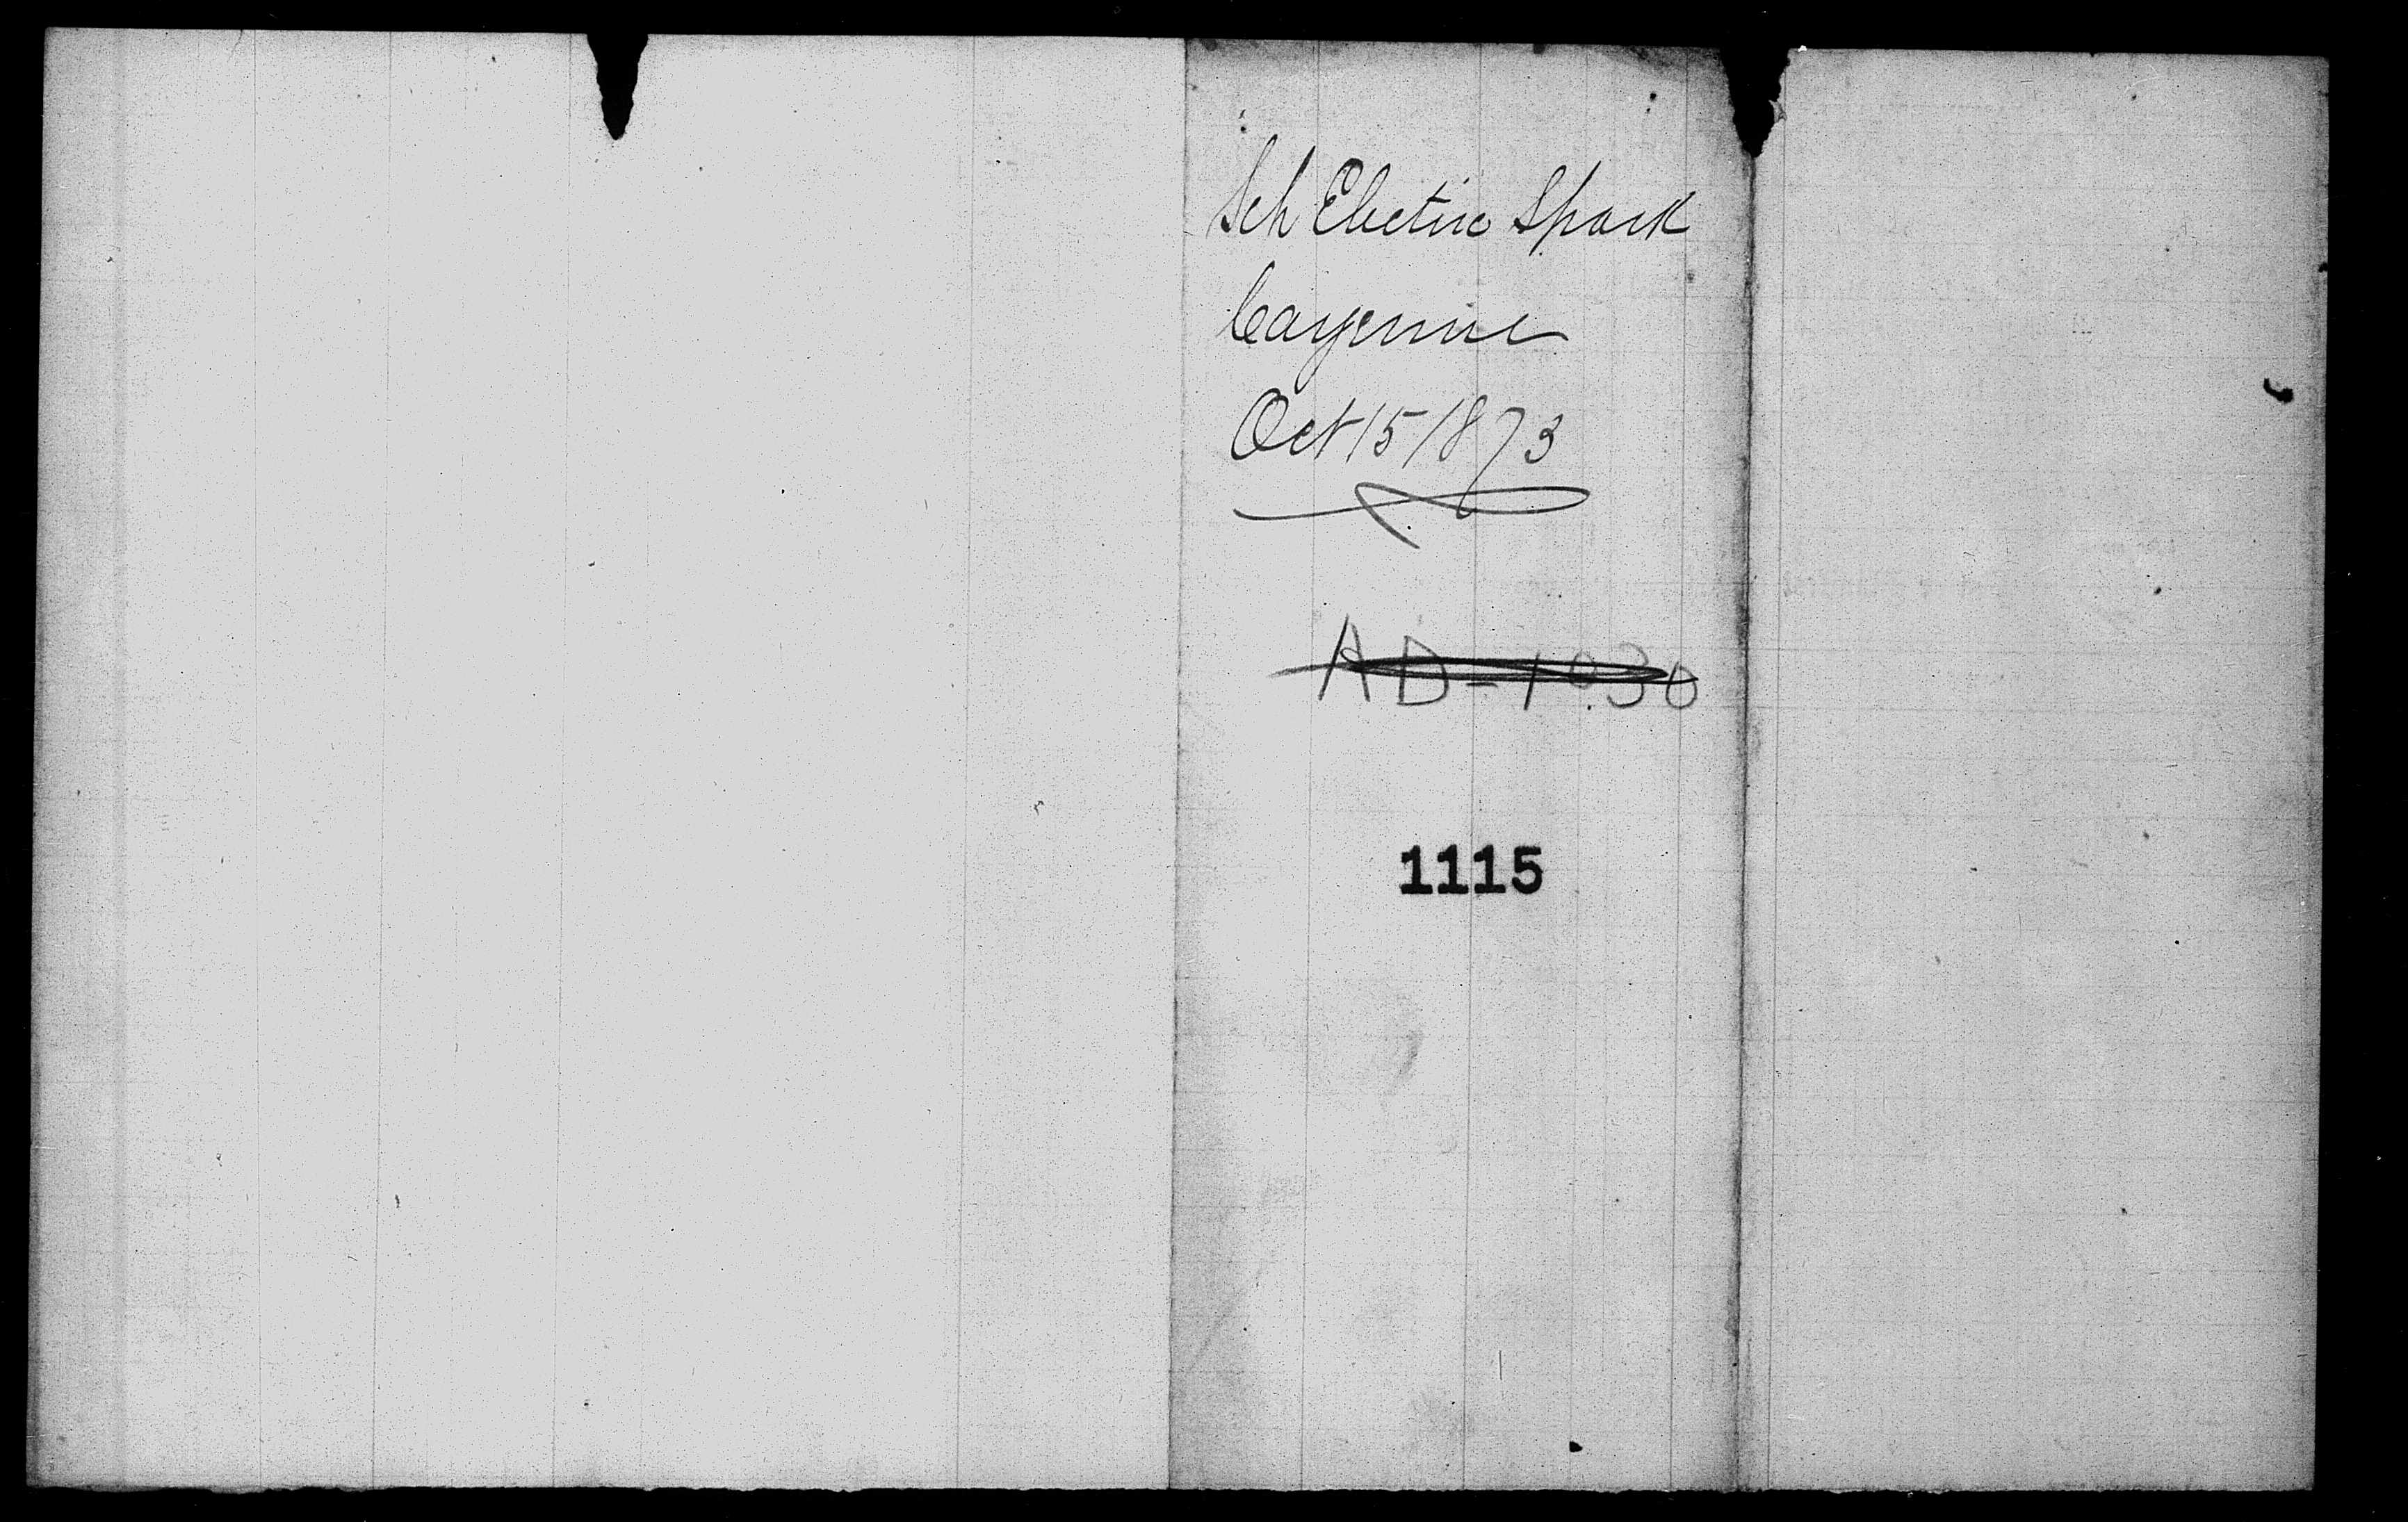 Sch Electric Spark
Cayenne
Oct 15 1873
AD-1030
1115